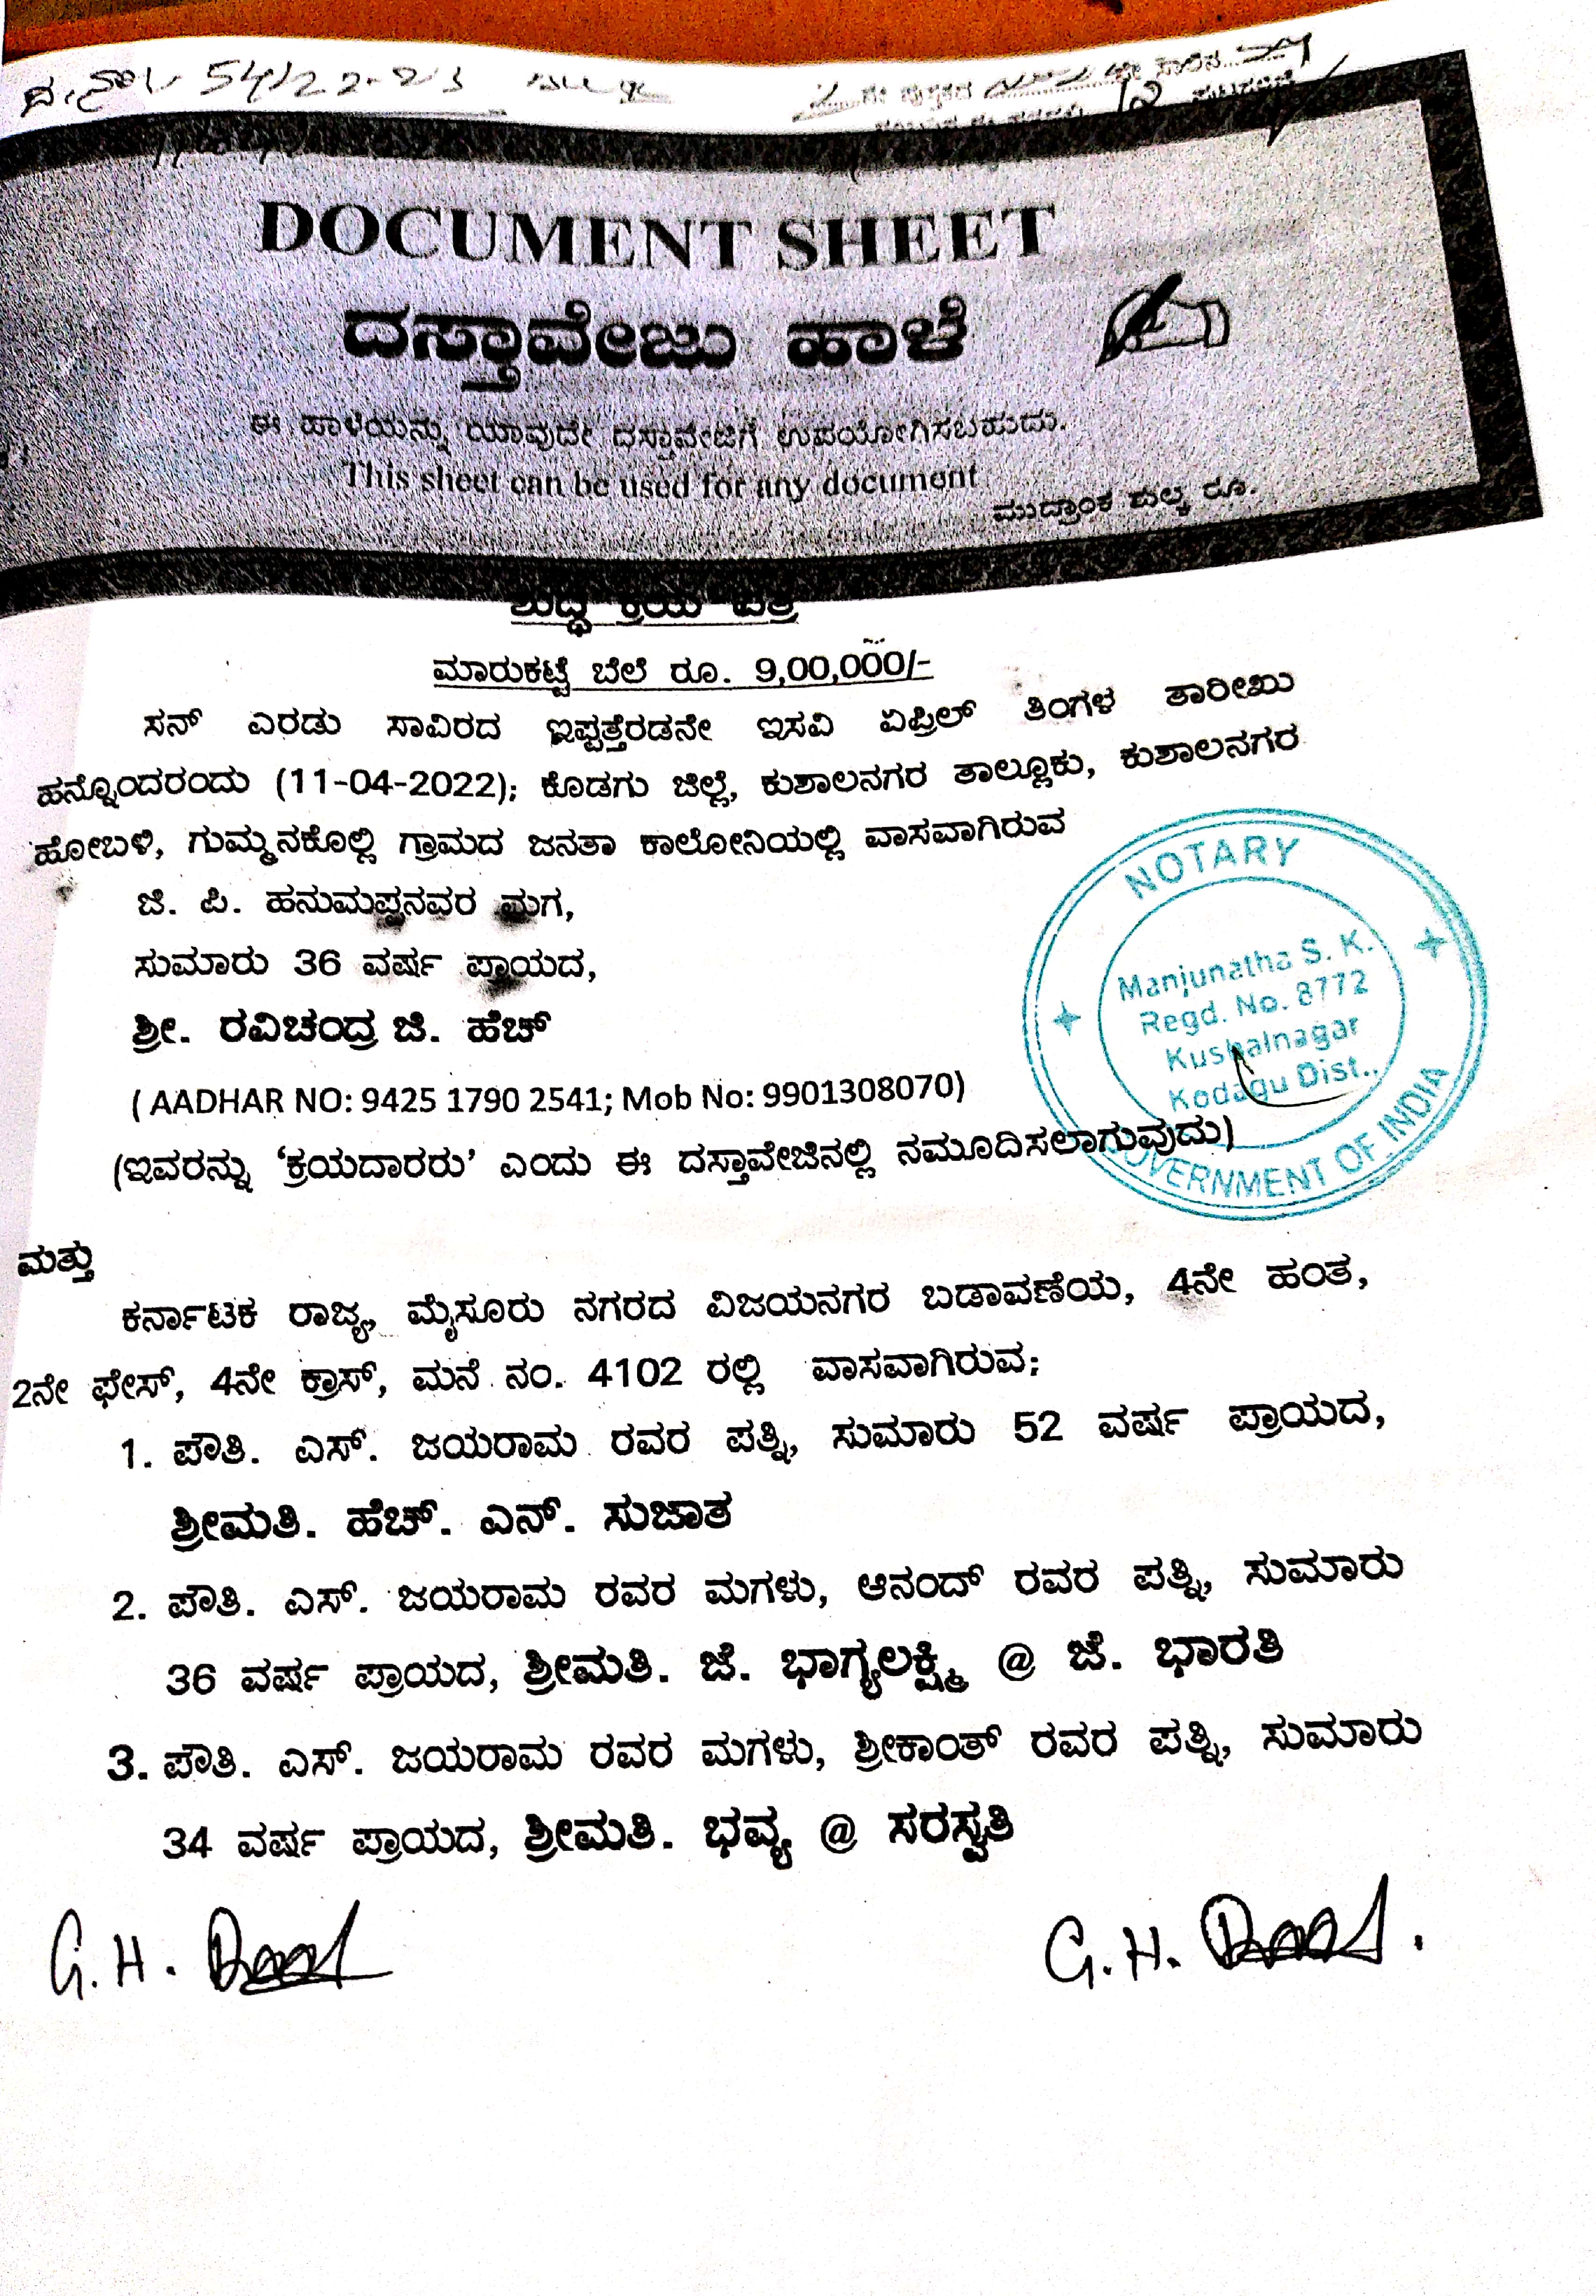 54/22-23
DOCUMENT SHEET
ದಸ್ತಾವೇಜು ಹಾಳೆ
ಈ ಹಾಳೆಯನ್ನು ಯಾವುದೇ ದಸ್ತಾವೇಜಿಗೆ ಉಪಯೋಗಿಸಬಹುದು.
This sheet can be used for any document
ಮುದ್ರಾಂಕ ಶುಲ್ಕ ರೂ.
ಶುದ್ಧ ಕ್ರಯ ಪತ್ರ
ಮಾರುಕಟ್ಟೆ ಬೆಲೆ ರೂ. 9,00,000/-
ಸನ್ ಎರಡು ಸಾವಿರದ ಇಪ್ಪತ್ತೆರಡನೇ ಇಸವಿ ಏಪ್ರಿಲ್ ತಿಂಗಳ ತಾರೀಖು
ಹನ್ನೊಂದರಂದು (11-04-2022); ಕೊಡಗು ಜಿಲ್ಲೆ, ಕುಶಾಲನಗರ ತಾಲ್ಲೂಕು, ಕುಶಾಲನಗರ
ಹೋಬಳಿ, ಗುಮ್ಮನಕೊಲ್ಲಿ ಗ್ರಾಮದ ಜನತಾ ಕಾಲೋನಿಯಲ್ಲಿ ವಾಸವಾಗಿರುವ
ಜಿ. ಪಿ. ಹನುಮಪ್ಪನವರ ಮಗ,
ಸುಮಾರು 36 ವರ್ಷ ಪ್ರಾಯದ,
ಶ್ರೀ. ರವಿಚಂದ್ರ ಜಿ. ಹೆಚ್
( AADHAR NO: 9425 1790 2541; Mob No: 9901308070)
(ಇವರನ್ನು ‘ಕ್ರಯದಾರರು’ ಎಂದು ಈ ದಸ್ತಾವೇಜಿನಲ್ಲಿ ನಮೂದಿಸಲಾಗುವುದು)
NOTARY
Manjunatha S. K.
Regd. No. 8772
Kushalnagar
Kodagu Dist.,
GOVERNMENT OF INDIA
ಮತ್ತು
ಕರ್ನಾಟಕ ರಾಜ್ಯ, ಮೈಸೂರು ನಗರದ ವಿಜಯನಗರ ಬಡಾವಣೆಯ, 4ನೇ ಹಂತ,
2ನೇ ಫೇಸ್, 4ನೇ ಕ್ರಾಸ್, ಮನೆ ನಂ. 4102 ರಲ್ಲಿ ವಾಸವಾಗಿರುವ;
1. ಪೌತಿ. ಎಸ್. ಜಯರಾಮ ರವರ ಪತ್ನಿ, ಸುಮಾರು 52 ವರ್ಷ ಪ್ರಾಯದ,
ಶ್ರೀಮತಿ. ಹೆಚ್. ಎನ್. ಸುಜಾತ
2. ಪೌತಿ. ಎಸ್. ಜಯರಾಮ ರವರ ಮಗಳು, ಆನಂದ್ ರವರ ಪತ್ನಿ, ಸುಮಾರು
36 ವರ್ಷ ಪ್ರಾಯದ, ಶ್ರೀಮತಿ. ಜೆ. ಭಾಗ್ಯಲಕ್ಷ್ಮಿ @ ಜೆ. ಭಾರತಿ
3. ಪೌತಿ. ಎಸ್. ಜಯರಾಮ ರವರ ಮಗಳು, ಶ್ರೀಕಾಂತ್ ರವರ ಪತ್ನಿ, ಸುಮಾರು
34 ವರ್ಷ ಪ್ರಾಯದ, ಶ್ರೀಮತಿ. ಭವ್ಯ @ ಸರಸ್ವತಿ
G. H. G. H.